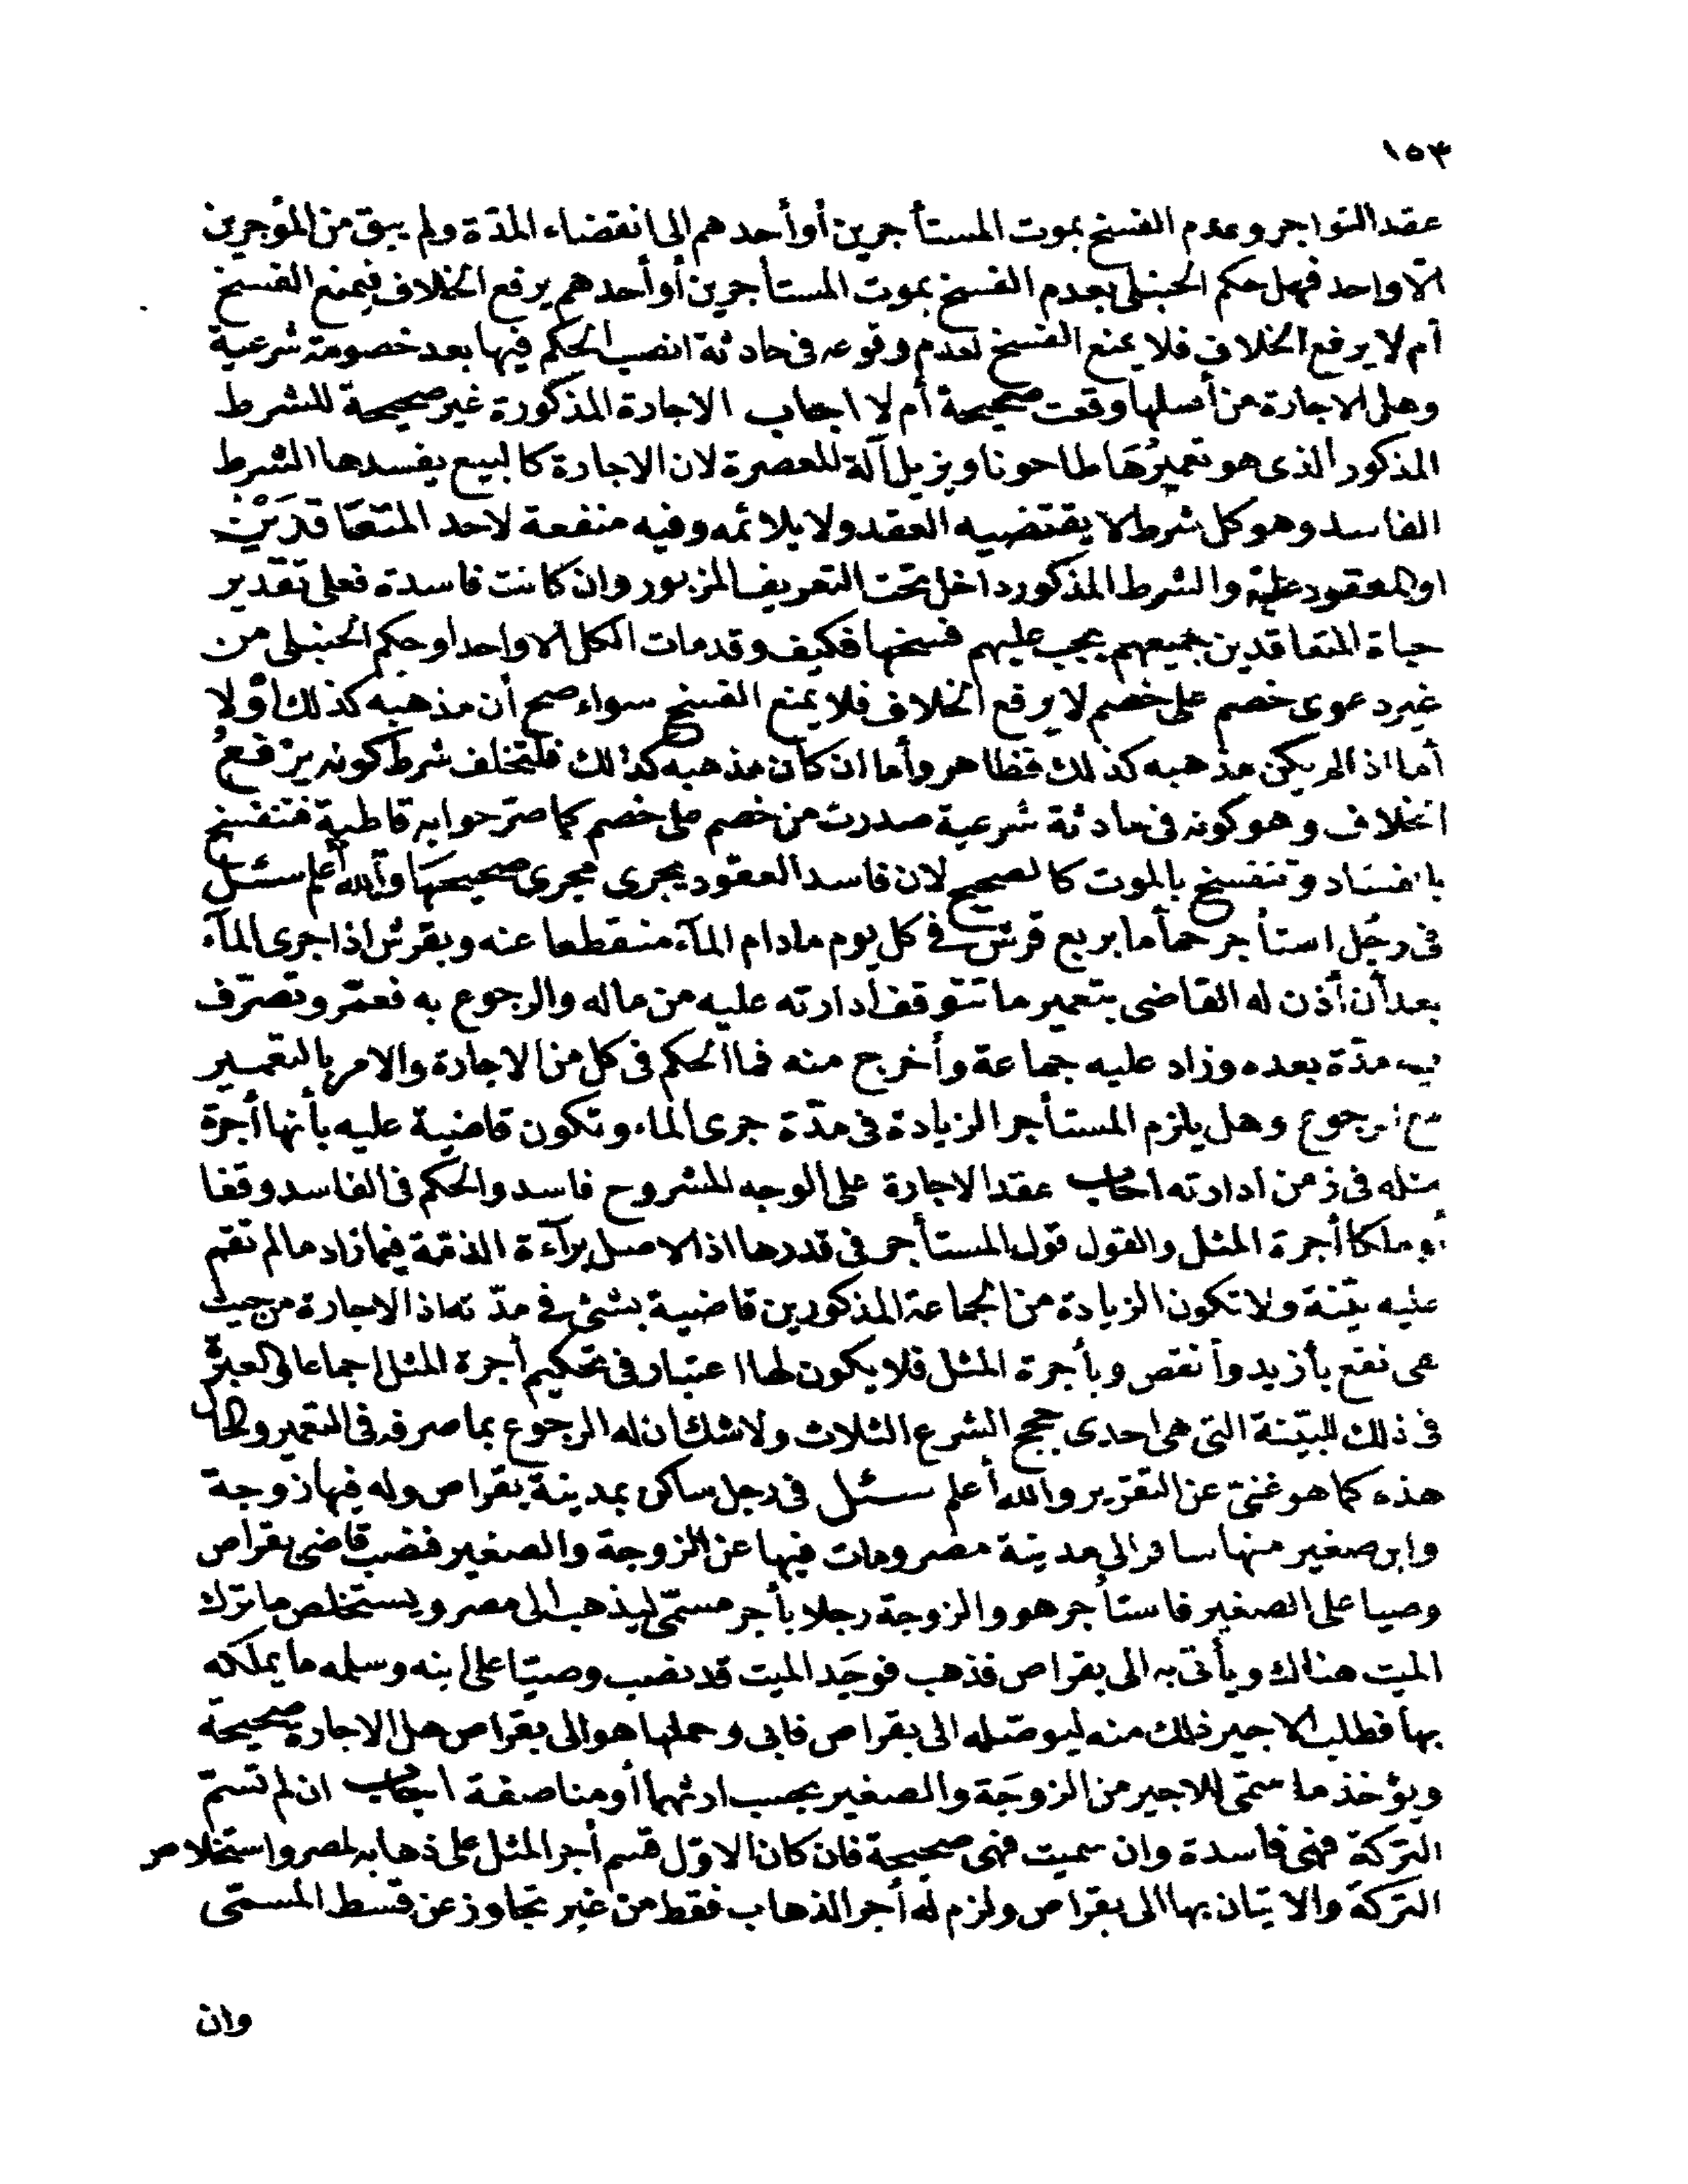 ١٥٣
عقد التواجر وعدم الفسخ بموت المستأجرين أو أحدهم الى انقضاء المدّة ولم يبق من المؤجرين
الّا واحد فهل حكم الحنبلى بعدم الفسخ بموت المستأجرين أو أحدهم يرفع الخلاف فيمنع الفسخ
أم لا يرفع الخلاف فلا يمنع الفسخ لعدم وقوعه فى حادثة انصب الحكم فيها بعد خصومة شرعية
وهل الاجارة من أصلها وقعت صحيحة أم لا اجاب الاجارة المذكورة غير صحيحة للشرط
المذكور الذى هو تعميرُهَا طاحونا ويزيل آلة للعصرة لان الاجارة كالبيع يفسدها الشرط
الفاسد وهو كل شرط لا يقتضيه العقد ولا يلائمه وفيه منفعة لاحد المتعَاقدَيْن
او المعقود عليه والشرط المذكور داخل تحت التعريف المزبور وان كانت فاسدة فعلى تقدير
حياة المتعاقدين جميعهم يجب عليهم فسخها فكيف وقد مات الكل الا واحدا وحكم الحنبلى من
غير دعوى خصم على خصم لا يرفع الخلاف فلا يمنع الفسخ سواء صح أن مذهبه كذلك أوْلا
أما اذا لم يكن مذهبه كذلك فظاهر وأما ان كان مذهبه كذلك فلتخلف شرط كونه يرْفعُ
الخلاف وهو كونه فى حادثة شرعية صدرت من خصم على خصم كما صرّحوا به قاطبة فتنفسخ
بالفسَاد وتنفسخ بالموت كالصحيح لان فاسد العقود يجرى مجرى صحيحهَا والله أعلم سئل
فى رجُل استأجر حمأما بربع قرش فى كل يوم ما دام المآء منقطعا عنه وبقرش اذا جرى المآء
بعد أن أذن له القاضى بتعمير ما تتوقف ادارته عليه من ماله والرجوع به فعمّر وتصرّف
فيه مدّة بعده وزاد عليه جماعة وأخرج منه فما الحكم فى كل من الاجارة والامر بالتعمير
مع الرجوع وهل يلزم المستأجر الزيادة فى مدّة جرى الماء وتكون قاضية عليه بأنها أجرة
مثله فى زمن ادارته اجاب عقد الاجارة على الوجه المشروح فاسد والحكم فى الفاسد وقفا
أو ملكا أجرة المثل والقول قول المستأجر فى قدرها اذ الاصل برآءة الذمّة فيما زاد ما لم تقم
عليه بيّنة ولا تكون الزيادة من الجماعة المذكورين قاضية بشئ فى مدّته اذ الاجارة من حيث
هى تقع بأزيد وأنقص وبأجرة المثل فلا يكون لها اعتبار فى تحكيم أجرة المثل اجماعا والعبرة
فى ذلك للبيّنة التى هى احدى حجج الشرع الثلاث ولا شك ان له الرجوع بما صرفه فى التعمير والحال
هذه كما هو غنىّ عن التقرير والله أعلم سئل فى رجل ساكن بمدينة بقراص وله فيها زوجة
وابن صغير منها سافر الى مدينة مصر ومات فيها عن الزوجة والصغير فنصب قاضى بقراص
وصيا على الصغير فاستأجر هو والزوجة رجلا بأجر مسمّى ليذهب الى مصر ويستخلص ما ترك
الميت هناك ويأتى به الى بقراص فذهب فوجَد الميت قد نصب وصيّا على ابنه وسلمه ما يملكه
بها فطلب الاجير ذلك منه ليوصّله الى بقراص فابى وحملها هو الى بقراص هل الاجارة صحيحة
ويؤخذ ما سمّى للاجير من الزوجَة والصغير بحسب ارثهما أو مناصفة اجاب ان لم تسمّ
التركة فهى فاسدة وان سميت فهى صحيحة فان كان الاوّل قسم أجر المثل على ذهابه لمصر واستخلاص
التركة والاتيان بها الى بقراص ولزم له أجر الذهاب فقط من غير تجاوز عن قسط المسمّى
وان